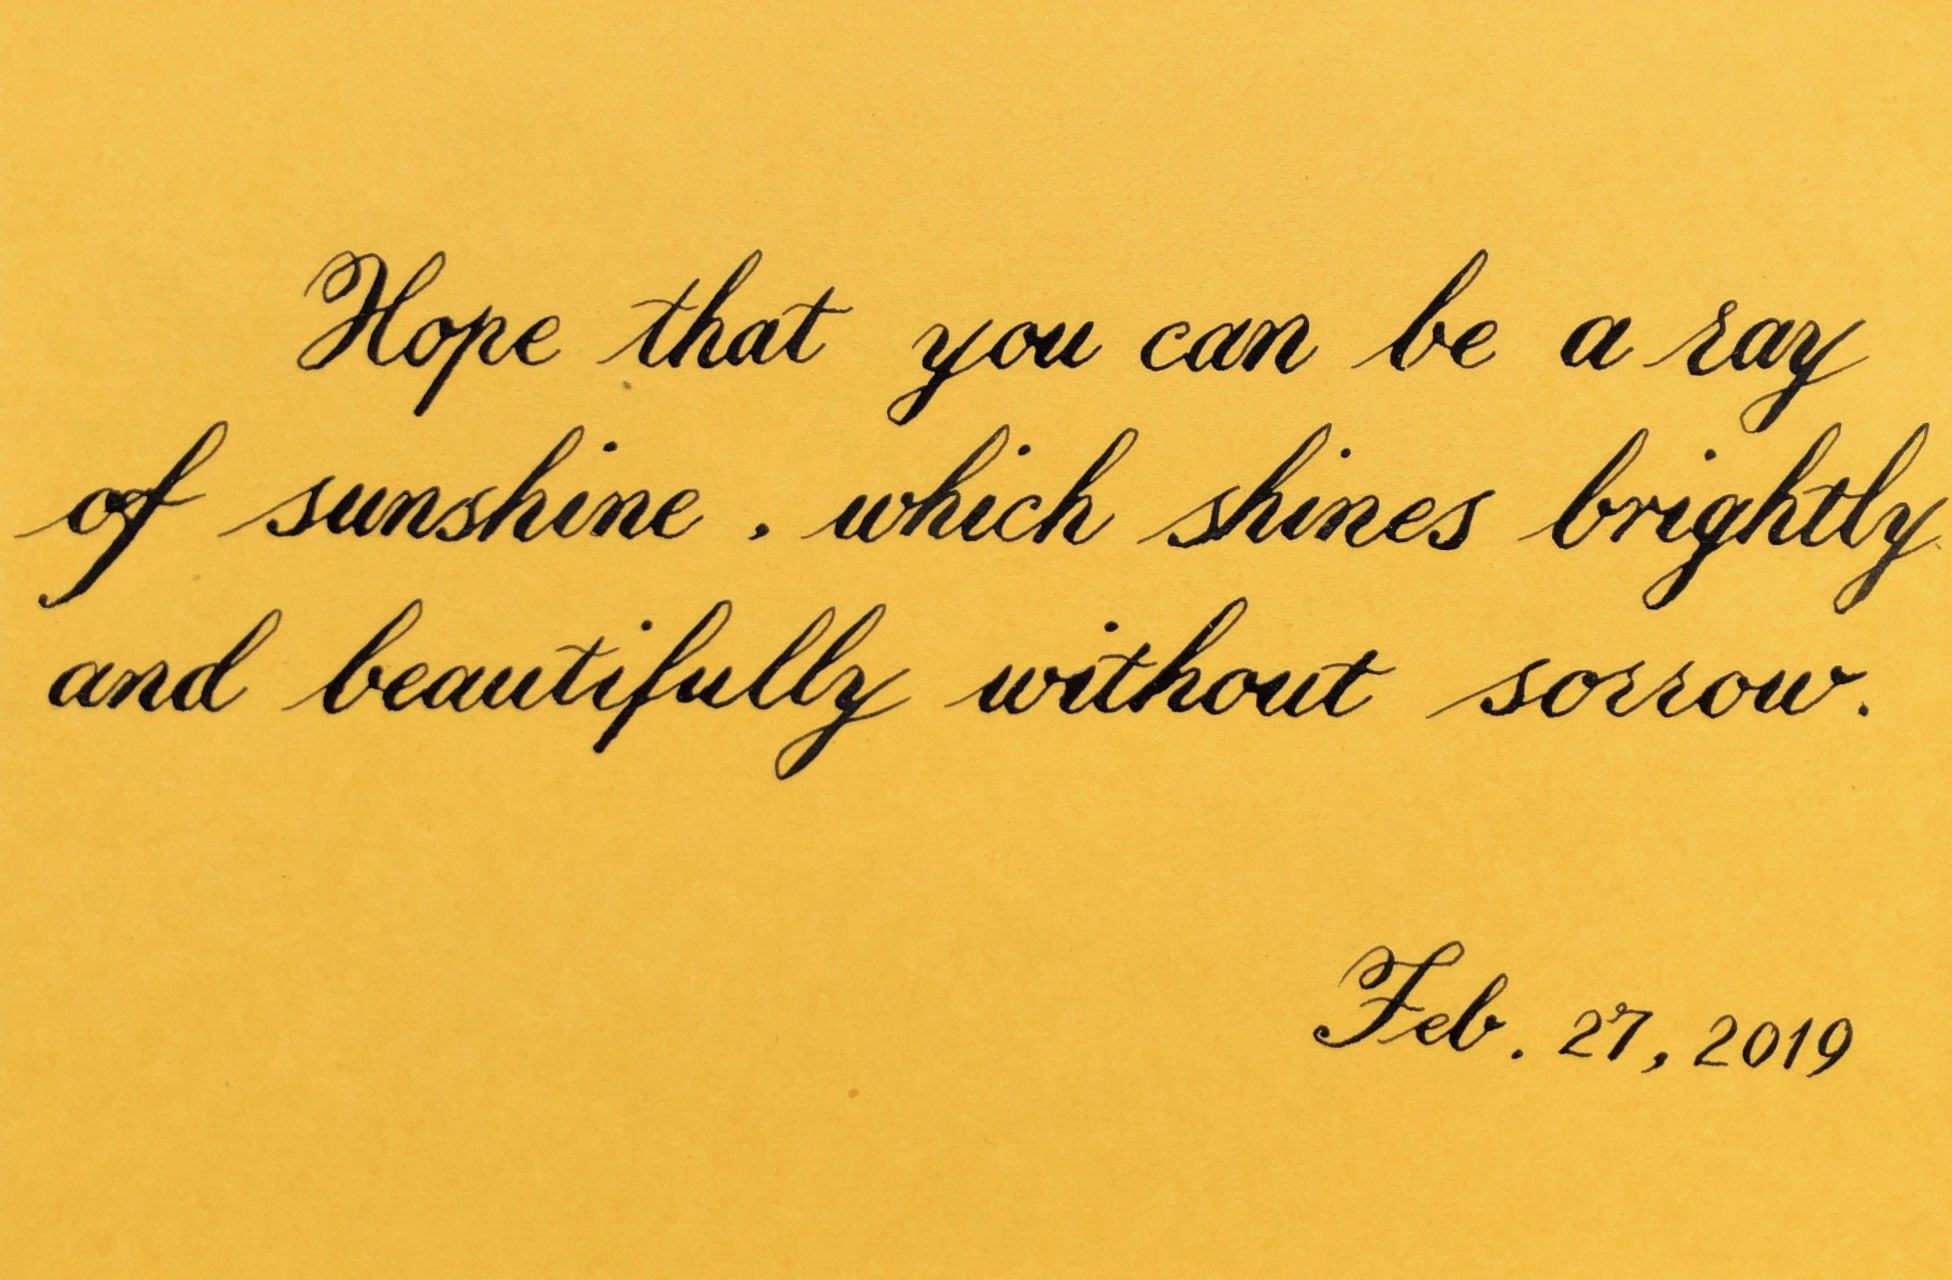 Hope that you can be a ray
of sunshine . which shines brightly
and beautifully without sorrow.
Feb. 27, 2019